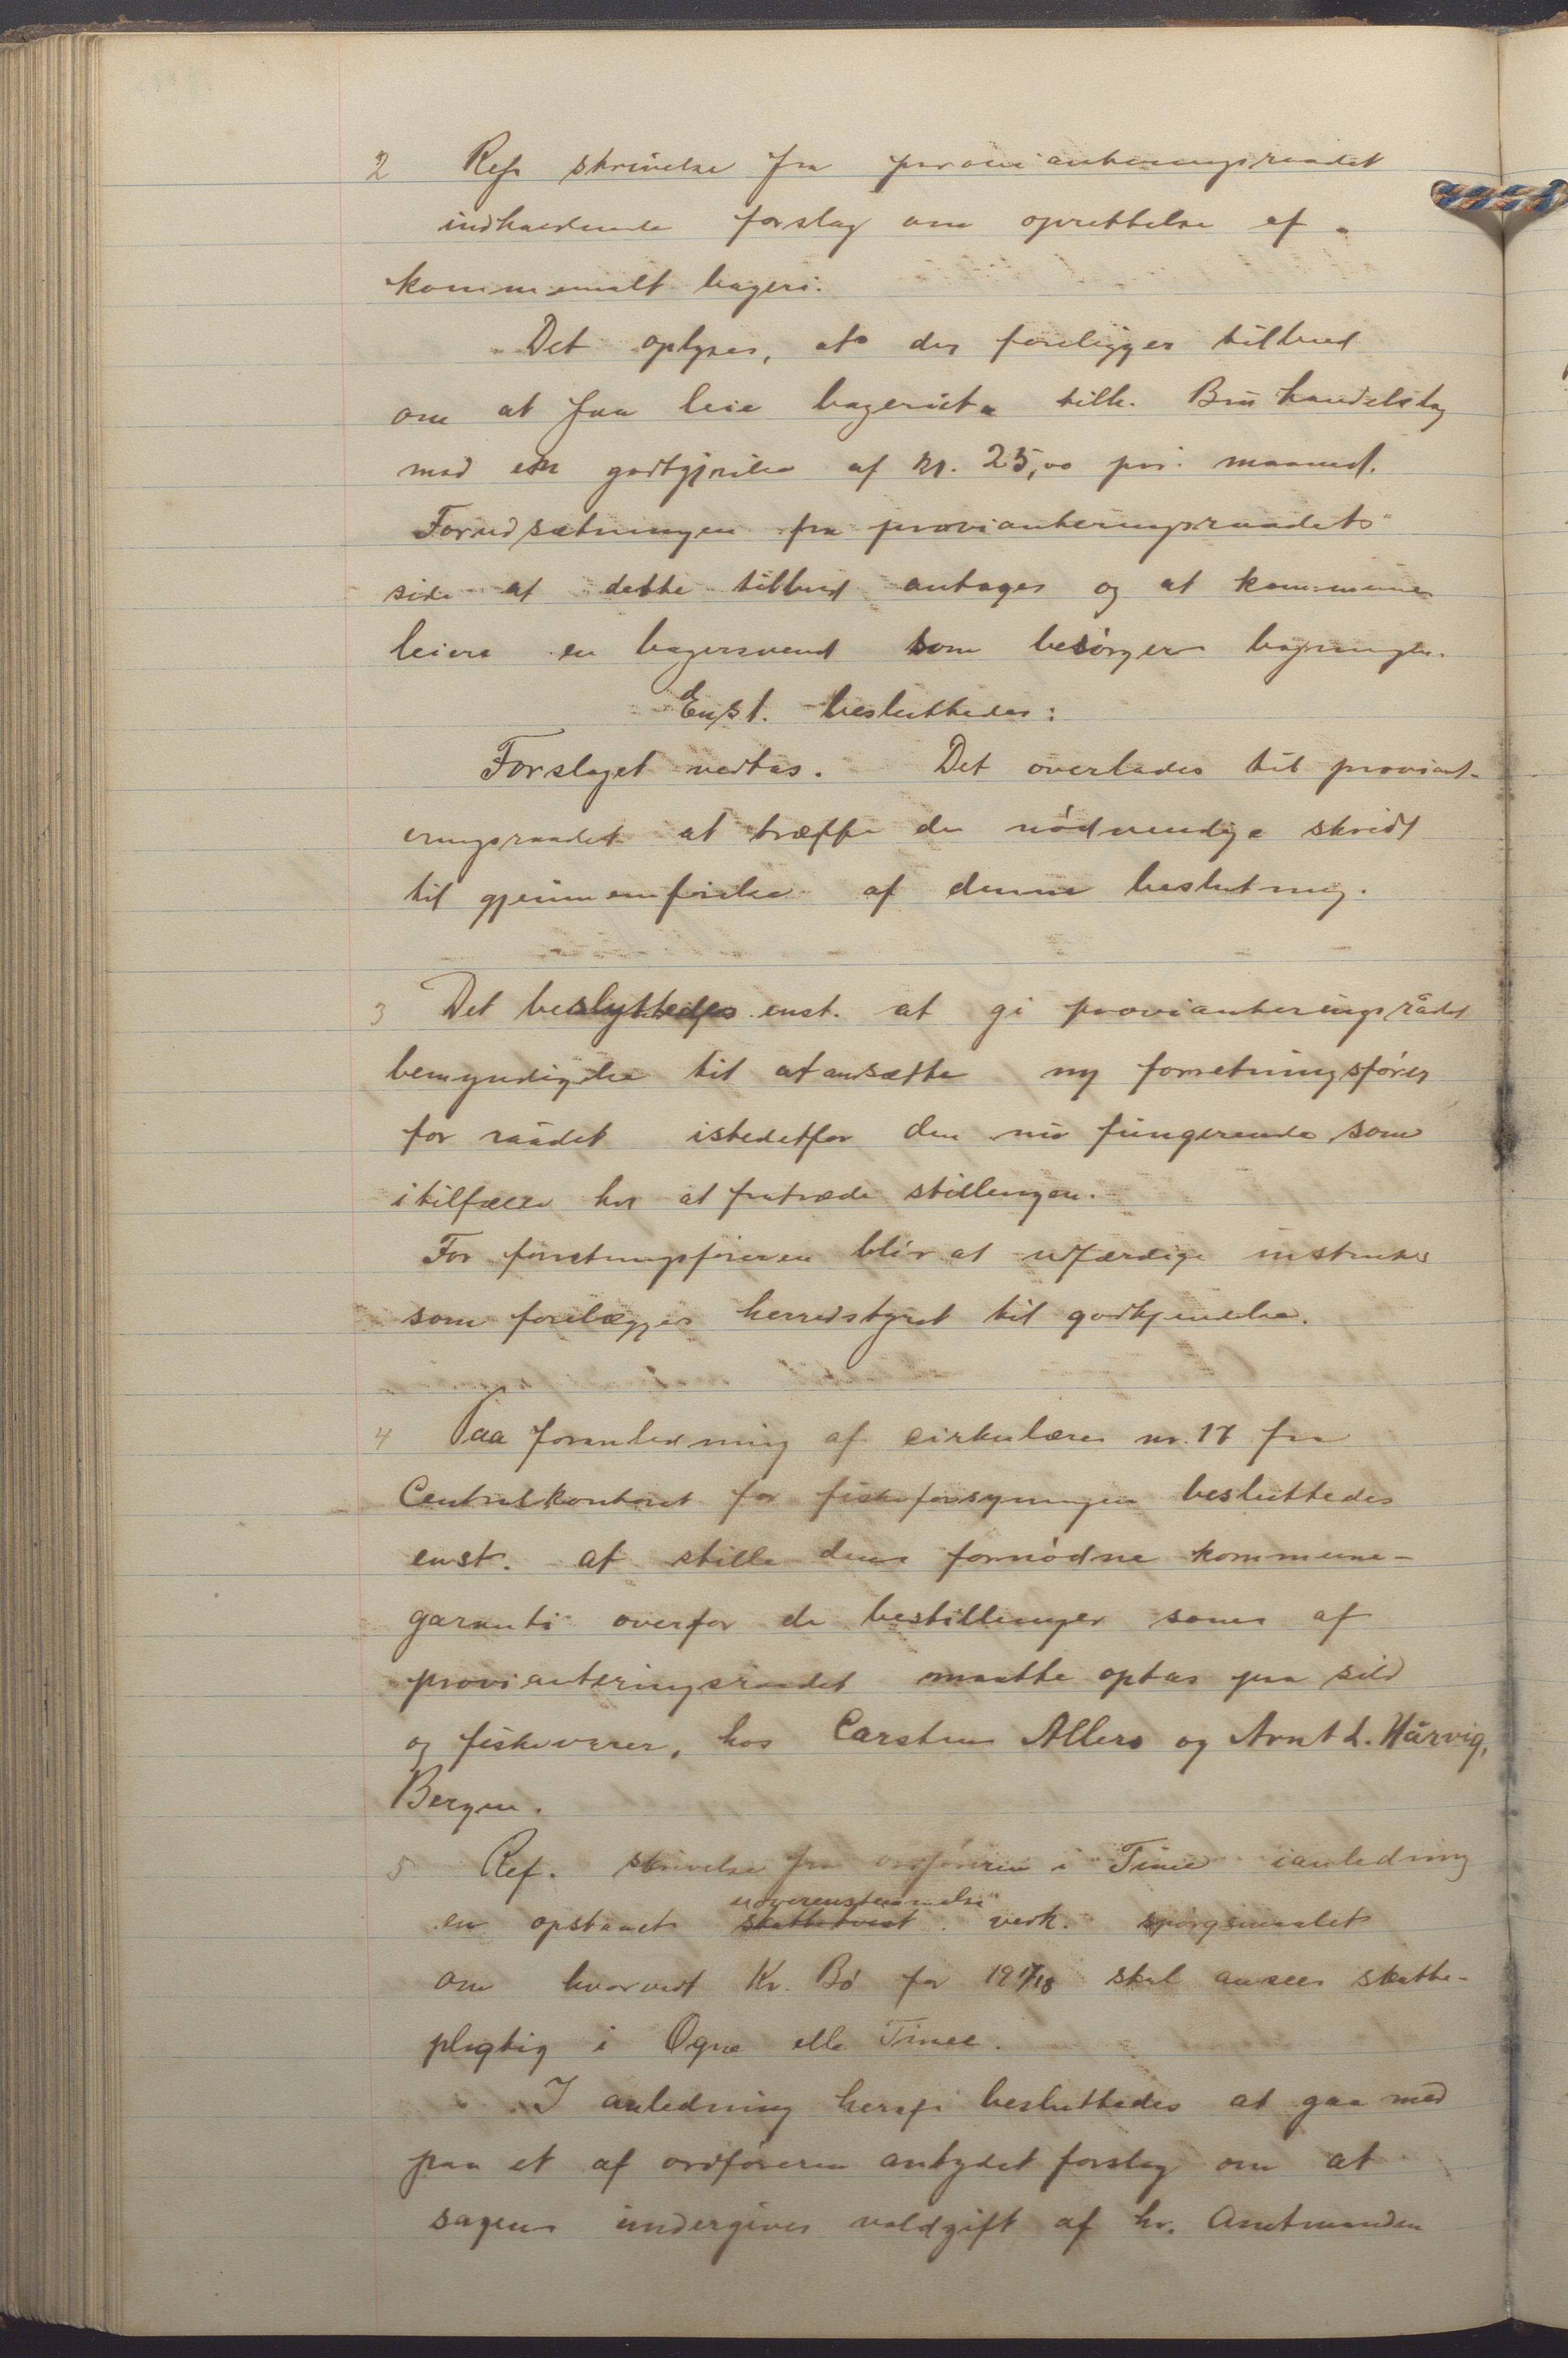 2 Ref. skrivelse fra provianteringsraadet
indholdende forslag om oprettelse af
kommunalt bageri.
Det oplyses, at der foreligger tilbud
om at faa leie bageriet tilh. Brusand handelslag
mod en godtgjørelse af kr. 25,00 pr. maaned.
Forudsætningen fra provianteringsraadets
side at dette tilbud antages og at kommunen
leier en bagersvend som besørger bagningen.
Enst. besluttedes:
Forslaget vedtas. Det overlades til proviant-
eringsraadet at træffe de nødvendige skridt
til gjennemførelse af denne beslutning.
3 Det besluttedes enst. at gi provianteringsrådet
bemyndigelse til at ansætte ny forretningsfører
for raadet istedetfor den nu fungerende som
i tilfælde har at fratræde stillingen.
For forretningsføreren blir at utfærdige instruks
som forelægges herredstyret til godkjendelse.
4 Paa foranledning af cirkulære nr. 17 fra
Centralkontoret for fiskeforsyningen besluttedes
enst. at stille den fornødne kommune-
garanti overfor de bestillinger som af
provianteringsraadet maatte optas paa sild
og fiskevarer, hos Carsten Allers og Arnt L. Hårvig,
Bergen.
5 Ref. skrivelse fra ordføreren i Time i anledning
en opstaaet skattetvist uoverensstemmelse vedk. spørgsmaalet
om hvorvidt Kr. Bø for 1917/18 skal ansees skatte-
pligtig i Ogna eller Time.
I anledning heraf besluttedes at gaa med
paa et af ordføreren antydet forslag om at
sagen undergives voldgift af hr. Amtmanden